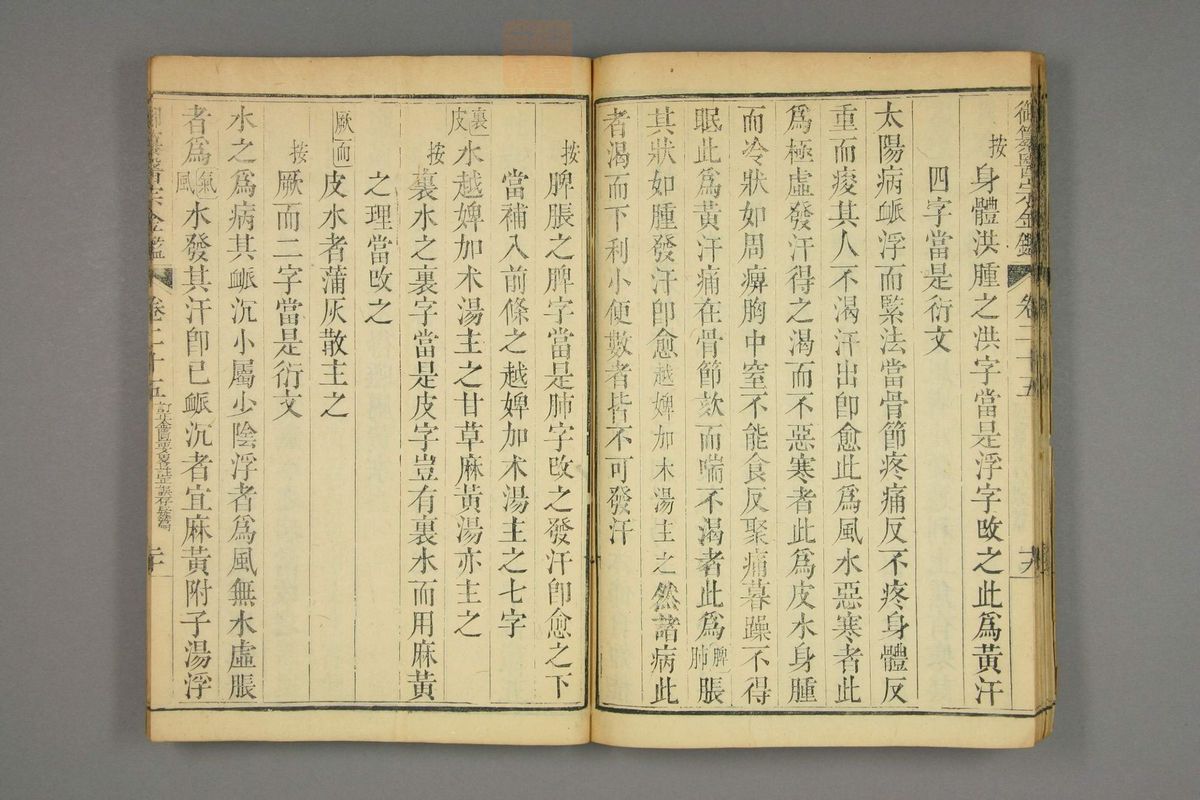 御纂醫宗金鑑 卷二十五 十九
按 身體洪腫之洪字當是浮字改之此爲黃汗
四字當是衍文
太陽病脈浮而緊法當骨節疼痛反不疼身體反
重而痠其人不渴汗出卽愈此爲風水惡寒者此
爲極虛發汗得之渴而不惡寒者此爲皮水身腫
而冷狀如周痺胸中窒不能食反聚痛暮躁不得
眠此爲黃汗痛在骨節欬而喘不渴者此爲脾肺脹
其狀如腫發汗卽愈越婢加朮湯主之然諸病此
者渴而下利小便數者皆不可發汗
按 脾脹之脾字當是肺字改之發汗卽愈之下
當補入前條之越婢加朮湯主之七字
裏皮水越婢加朮湯主之甘草麻黃湯亦主之
按 裏水之裏字當是皮字豈有裏水而用麻黃
之理當改之
厥而皮水者蒲灰散主之
按 厥而二字當是衍文
水之爲病其脈沉小屬少陰浮者爲風無水虛脹
者爲氣風水發其汗卽已脈沉者宜麻黃附子湯浮
御纂醫宗金鑑 卷二十五 訂正金匱要畧註正誤存疑篇 二十